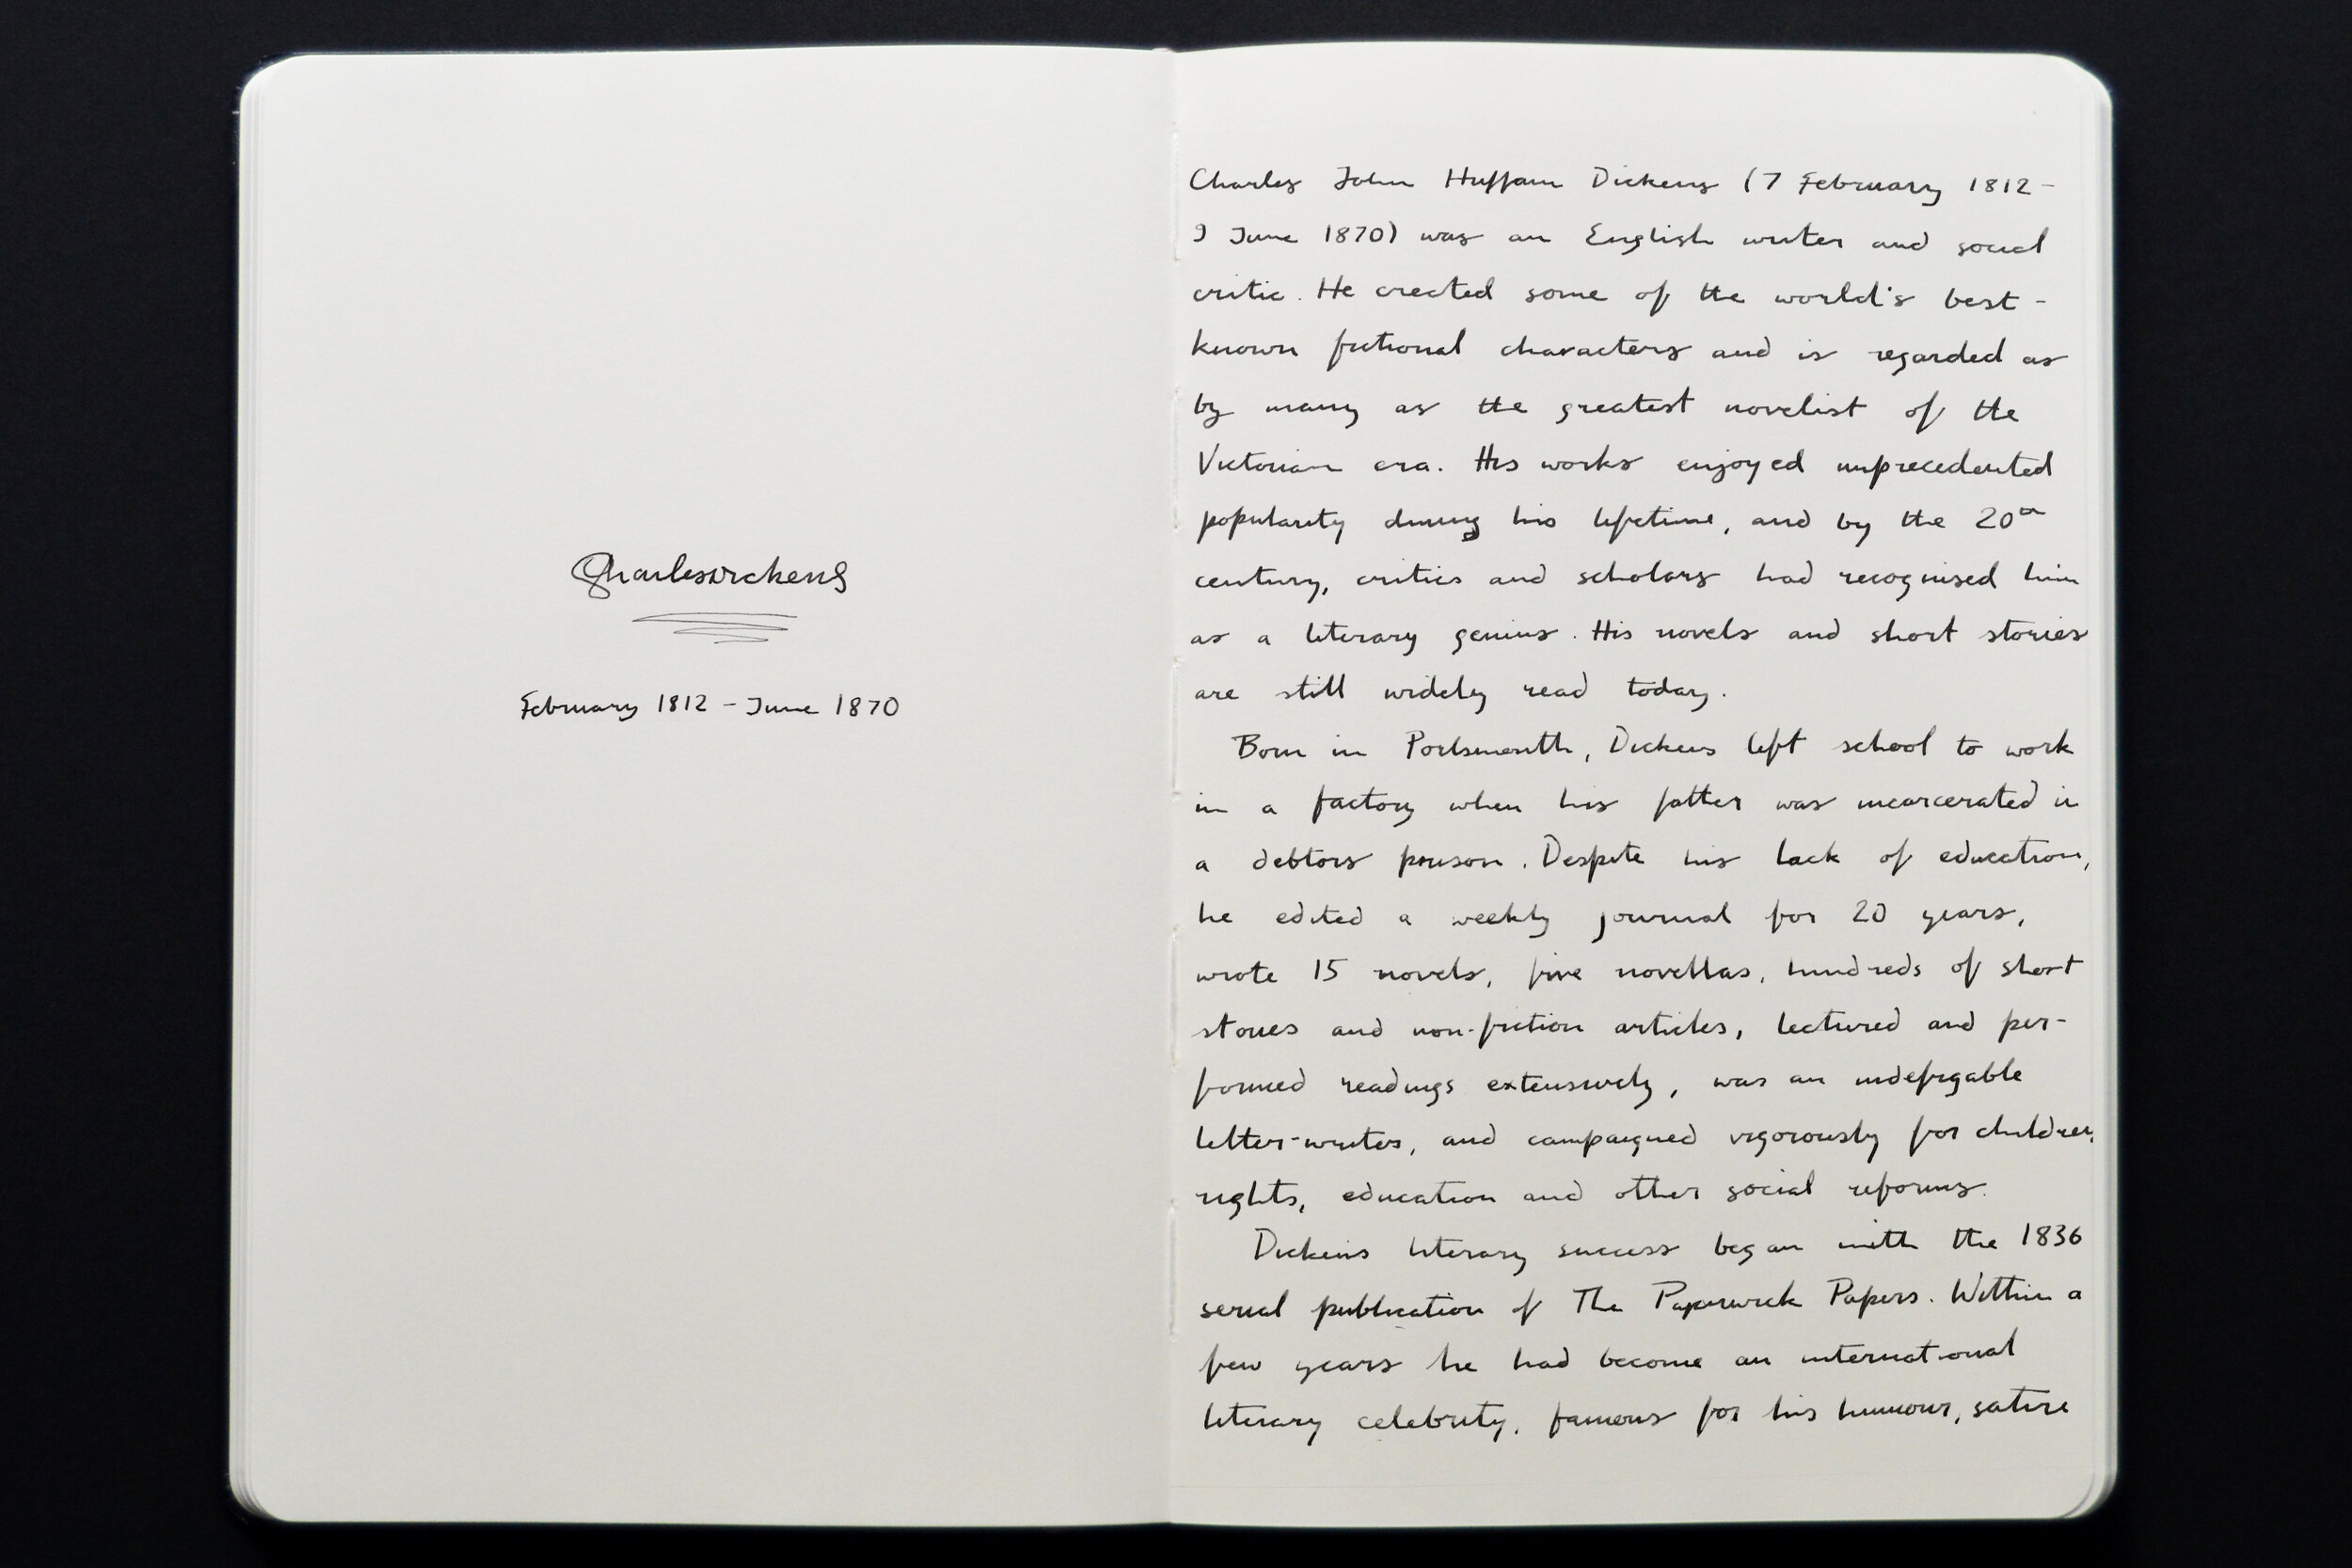 Charles Dickens
February 1812 - June 1870
Charles John Huffam Dickens (7 February 1812 -
9 June 1870) was an English writer and social
critic. He created some of the world's best -
known fictional characters and is regarded as
by many as the greatest novelist of the
Victorian era. His works enjoyed unprecedented
popularity during his lifetime, and by the 20th
century, critics and scholars had recognised him
as a literary genius. His novels and short stories
are still widely read today.
Born in Portsmouth, Dickens left school to work
in a factory when his father was incarcerated in
a debtors prison. Despite his lack of education,
he edited a weekly journal for 20 years,
wrote 15 novels, five novellas, hundreds of short
stories and non-fiction articles, lectured and per-
formed readings extensively, was an indefigable
letter-writer, and campaigned vigorously for children
rights, education and other social reforms.
Dickens literary success began with the 1836
serial publication of The Papnwick Papers. Within a
few years he had become an international
literary celebrity, famous for his humour, satire